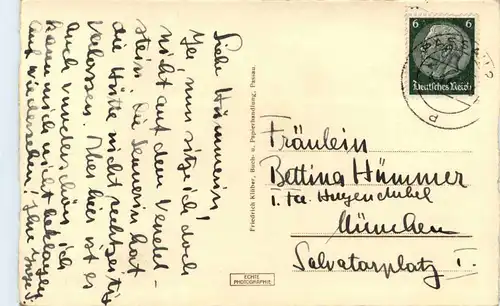 Liebe Hümmerin!
Ja, nun sitze ich doch
nicht auf dem Wendel-
stein. Die Sennerin hat
die Hütte nicht rechtzeitig
verlassen. Aber hier ist es
auch wunderschön, ich
kann mich nicht beklagen.
Auf Wiedersehen! Ihre
Friedrich Klüber, Buch- u. Papierhandlung, Passau.
ECHTE
PHOTOGRAPHIE
6 6
Deutsches Reich
Fräulein
Bettina Hümmer
i. Fa. Hugendubel
München
Salvatorplatz